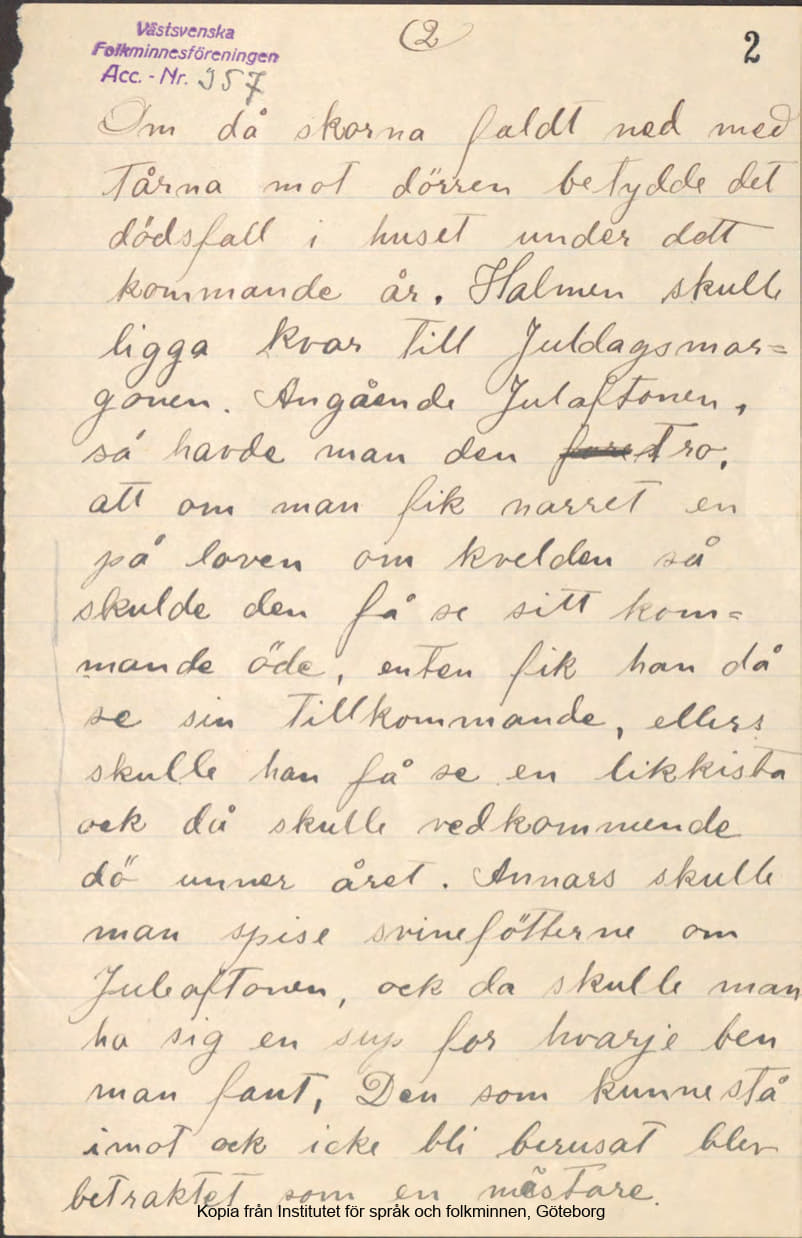 Västsvenska
Folkminnesföreningen
Acc. - Nr. 357
(2
2
Om då skorna faldt ned med
tårna mot dörren betydde det
dödsfall i huset under dett
kommande år. Halmen skulle
ligga kvar till Juldagsmor=
gonen. Angående Julaftonen,
så havde man den tro,
att om man fik narret en
på loven om kvelden så
skulde den få se sitt kom=
mande öde, enten fik han då
se sin tillkommande, ellers
skulle han få se en likkista
ock då skulle vedkommende
dö unner året. Annars skulle
man spise svinefötterne om
Juleaftonen, ock da skulle man
ha sig en sup for hvarje ben
man fant, Den som kunne stå
imot ock icke bli berusat blev
betraktet som en mästare.
Kopia från Institutet för språk och folkminnen, Göteborg